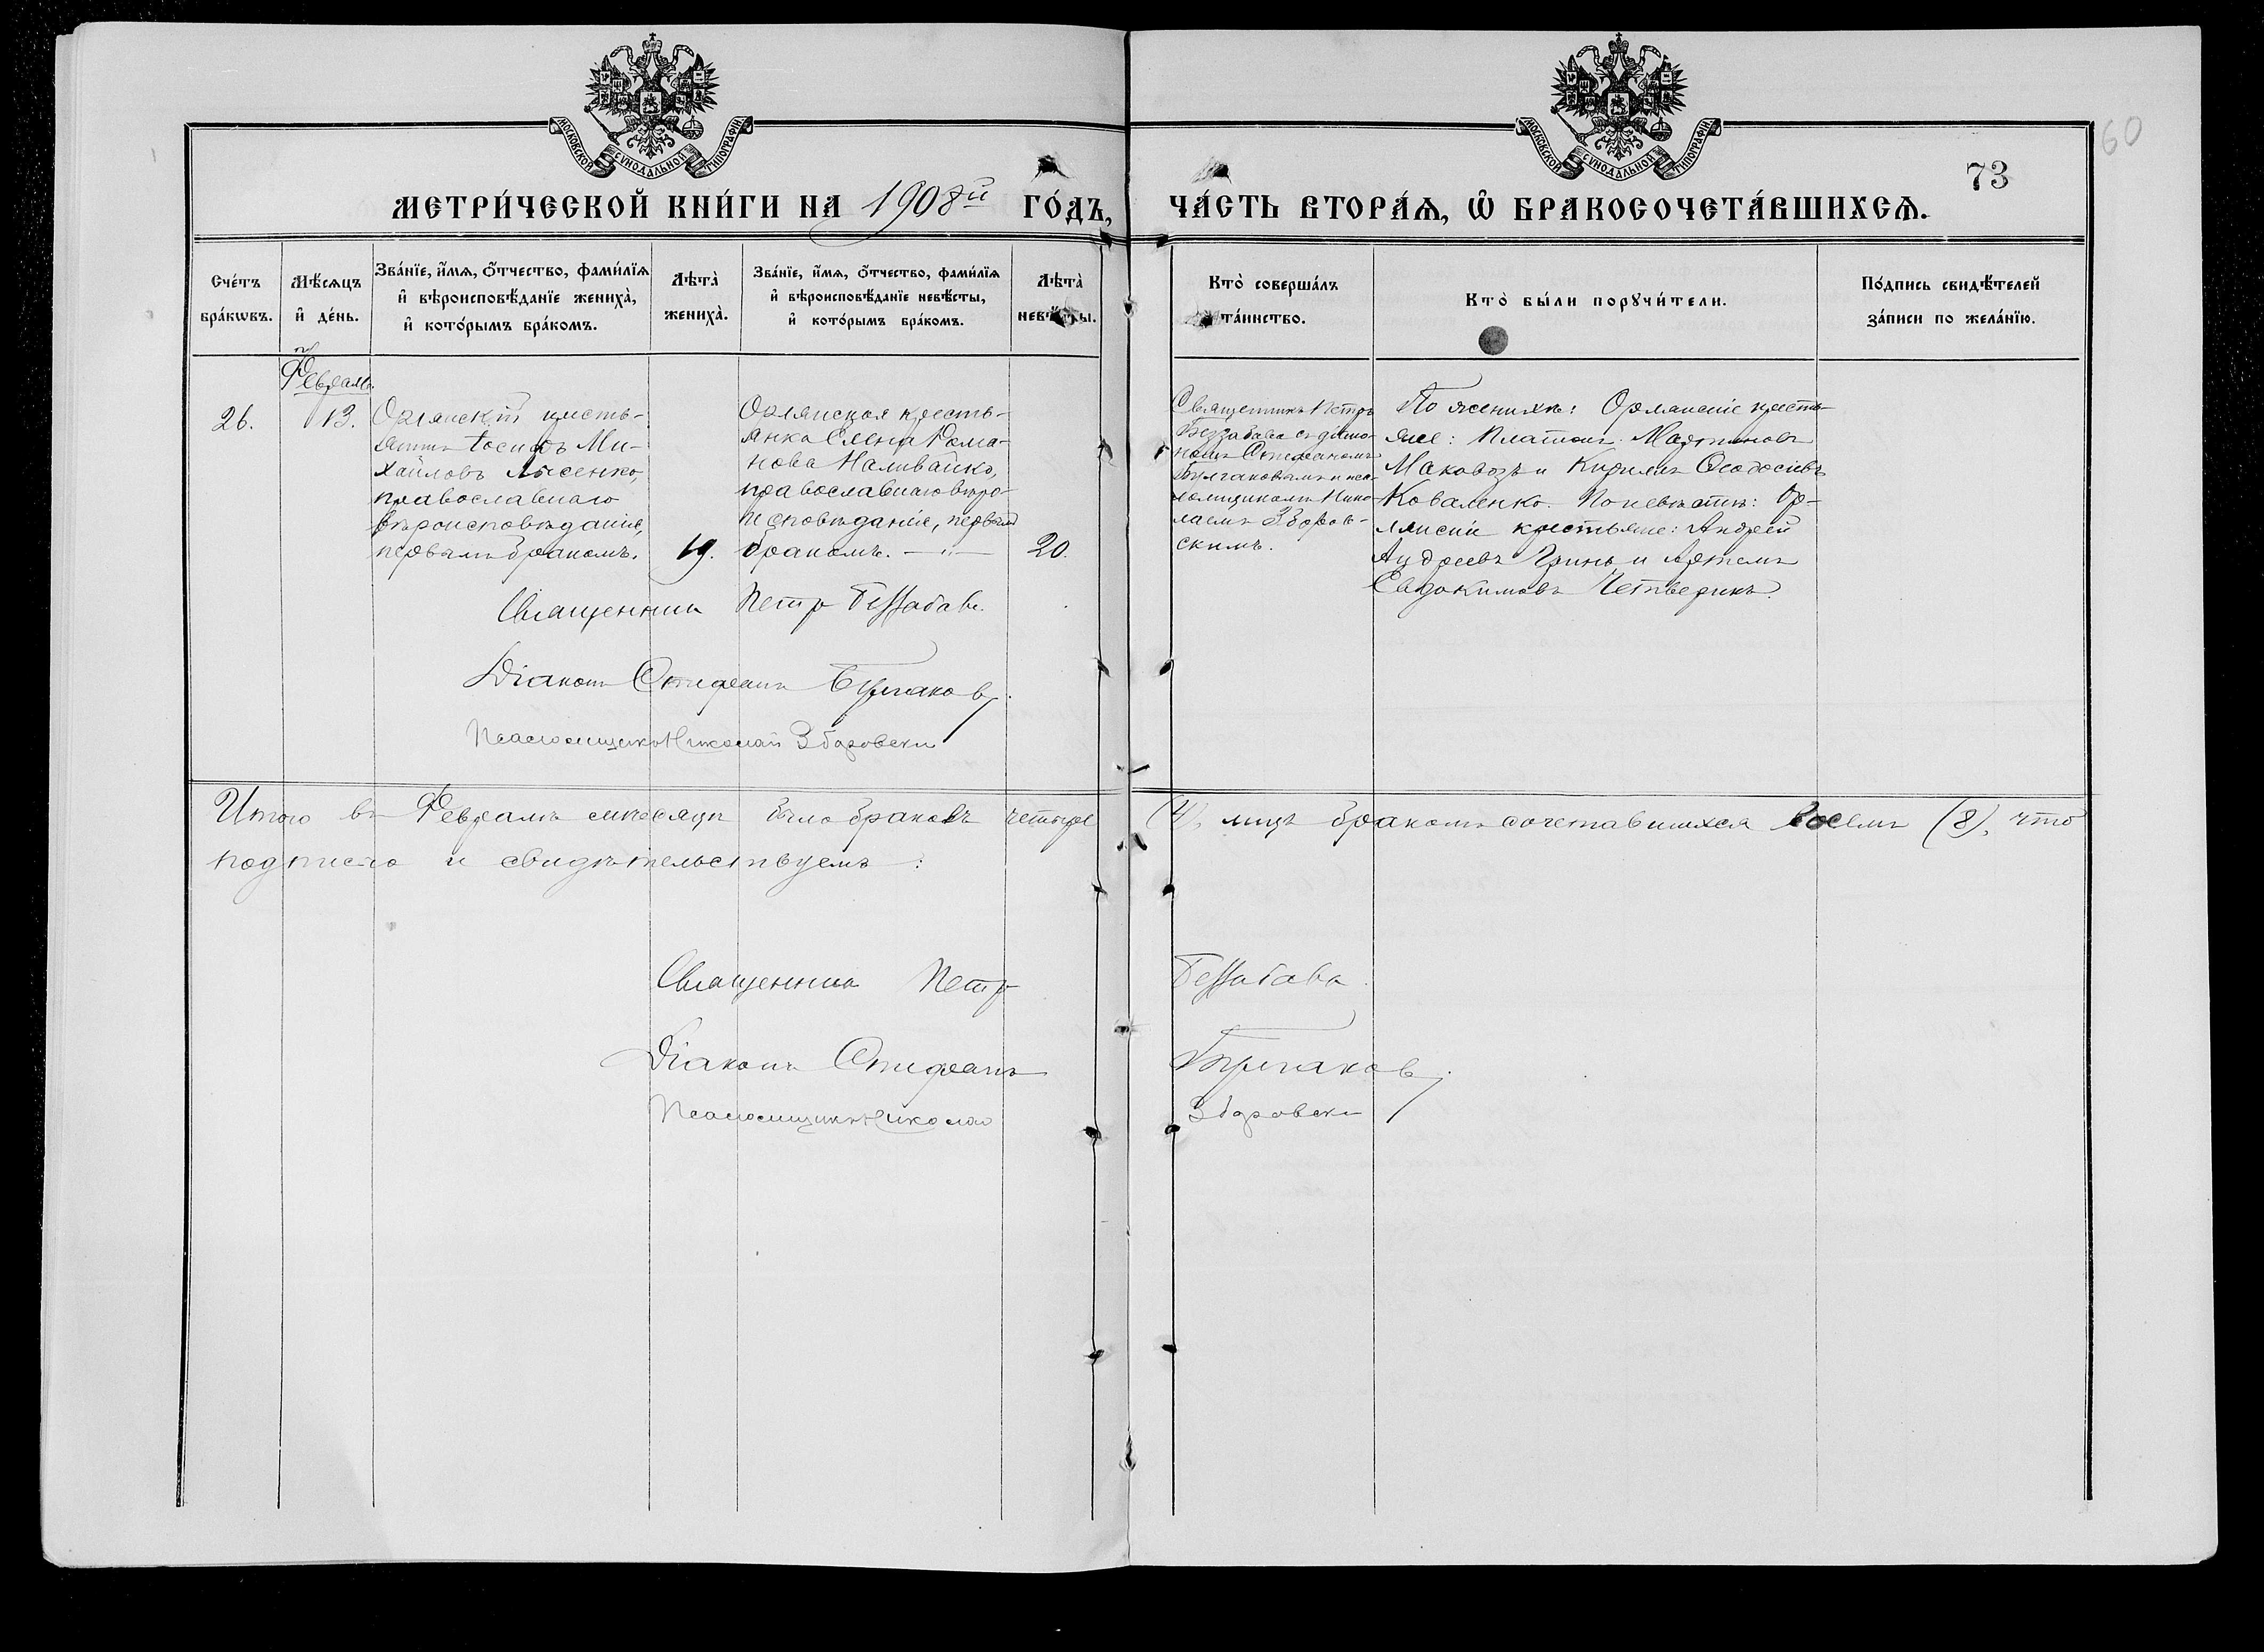 МОСКОВСКОЙ СѴНОДАЛЬНОЙ ТИПОГРАФІИ
МОСКОВСКОЙ СѴНОДАЛЬНОЙ ТИПОГРАФІИ
60
73
МЕТРИ́ЧЕСКОЙ КНИ́ГИ НА 1908й ГО́ДЪ, ЧА́СТЬ ВТОРА́Я, Ѡ БРАКОСОЧЕТА́ВШИХСЯ.
Сче́тъ
бра́кѡвъ.
Мѣ́сяцъ
и҆ де́нь.
Зва́нїе, и҆́мя, ѻ҆́тчество, фами́лїя
и҆ вѣроисповѣ́данїе жениха̀,
и҆ кото́рымъ бра́комъ.
Лѣта̀
жениха̀.
Зва́нїе, и҆́мя, ѻ҆́тчество, фами́лїя
и҆ вѣроисповѣ́данїе невѣ́сты,
и҆ кото́рымъ бра́комъ.
Лѣта̀
невѣ́сты.
Кто̀ соверша́лъ
та́инство.
Кто̀ бы́ли порꙋчи́тели.
По́дпись свидѣ́телей
за́писи по жела́нїю.
26.
Февраль.
13.
Орлянскій кресть-
янинъ Іосифъ Ми-
хайловъ Лысенко,
православнаго
вѣроисповѣданія,
первымъ бракомъ.
19.
Орлянская кресть-
янка Елена Рома-
нова Наливайко,
православнаго вѣро-
исповѣданія, первымъ
бракомъ. — „ —
20.
Священникъ Петръ
Беззабава съ діако-
номъ Стефаномъ
Булгаковымъ и пса-
ломщикомъ Нико-
лаемъ Зборов-
скимъ.
По женихѣ: Орлянскіе кресть-
яне: Платонъ Мартиновъ
Маковозъ и Кириллъ Ѳеодосіевъ
Коваленко. По невѣстѣ: Ор-
лянскіе крестьяне: Андрей
Андреевъ Гринь и Артемъ
Евдокимовъ Четверикъ.
Священникъ Петръ Беззабава.
Діаконъ Стефанъ Булгаковъ.
Псаломщикъ Николай Зборовскій
Итого въ Февралѣ мѣсяцѣ было браковъ четыре (4), лицъ бракомъ сочетавшихся восемь (8), что
подписью и свидѣтельствуемъ:
Священникъ Петръ Беззабава.
Діаконъ Стефанъ Булгаковъ.
Псаломщикъ Николай Зборовскій